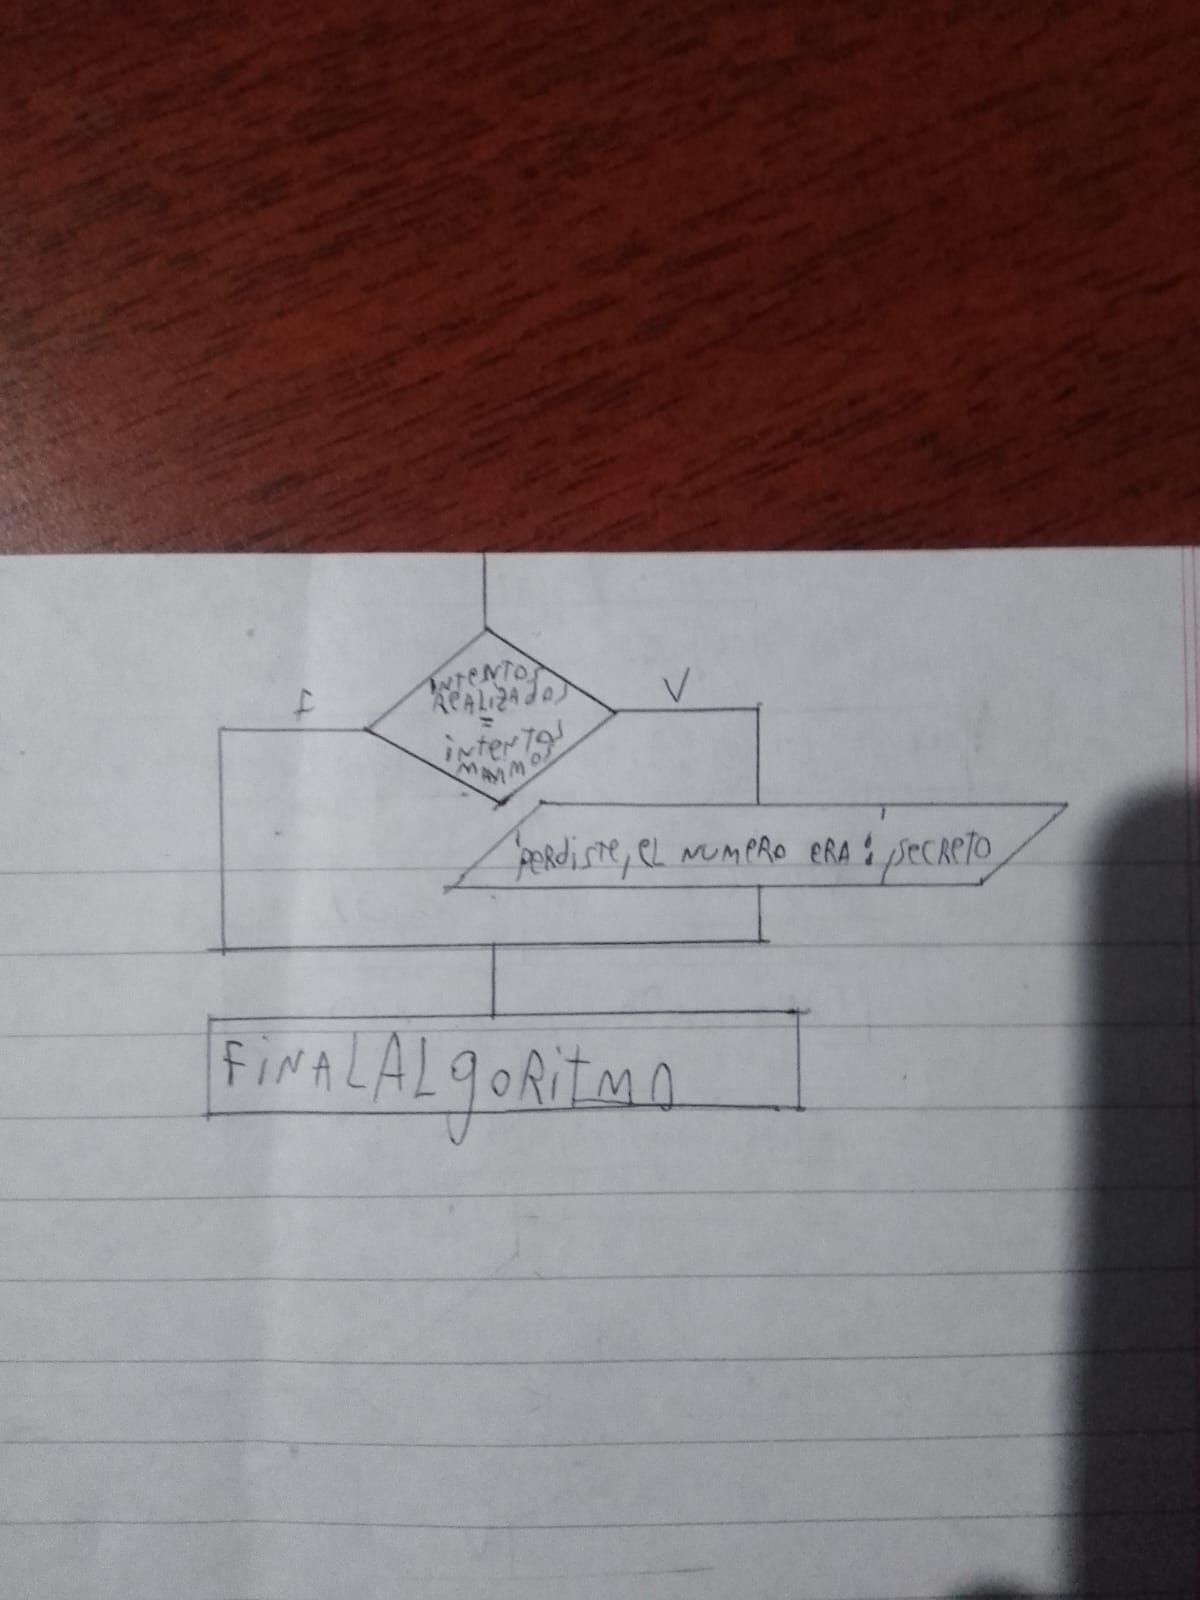 F
INTENTOS
REALIZADOS
=
INTENTOS
MAXIMOS
V
'PERDISTE, EL NUMERO ERA:', SECRETO
FINALALgORITMO